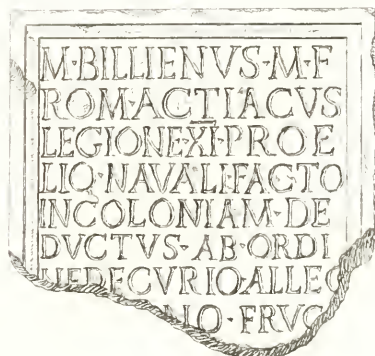 M·BILLIENVS·M·F
ROM·ACTIACVS
LEGIONE·XI·PROE
LIO·NAVALI·FACTO
IN COLONIAM·DE
DVCTVS·AB·ORDI
NE DECVRIO·ALLEC